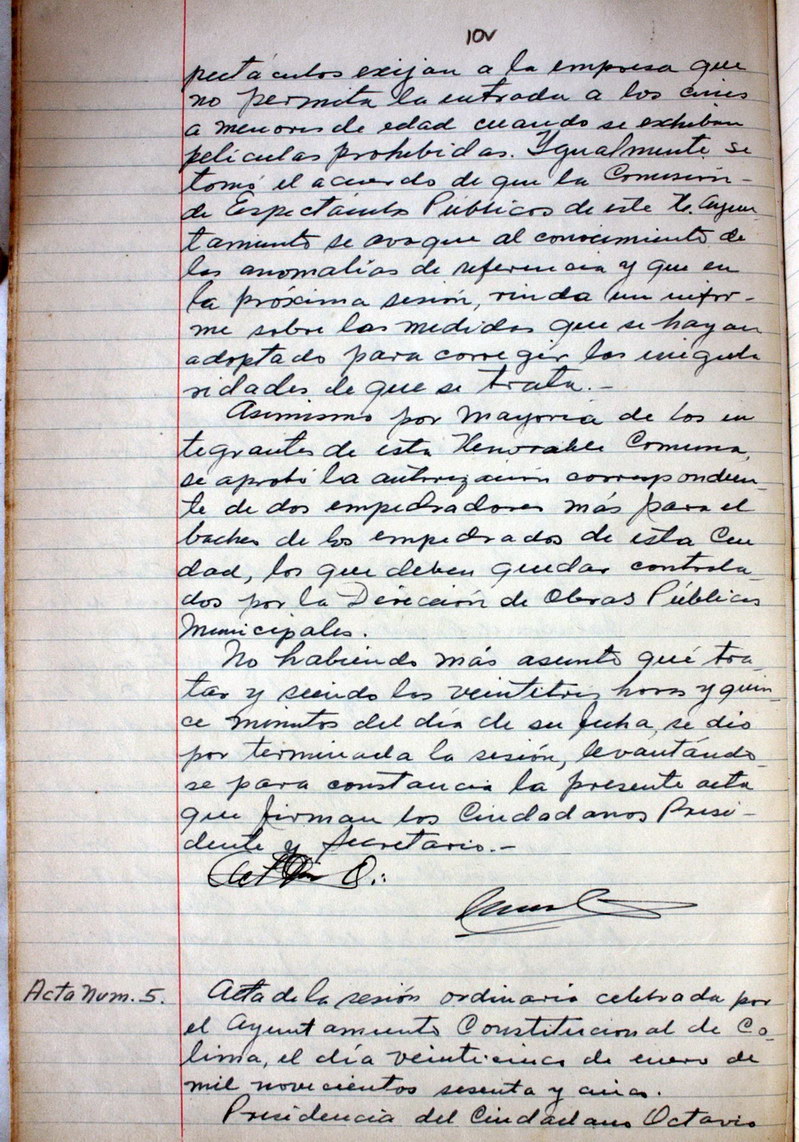 10v
pectáculos exijan a la empresa que
no permita la entrada a los cines
a menores de edad cuando se exhiban
películas prohibidas. Ygualmente se
tomó el acuerdo de que la Comisión-
de Espectáculos Públicos de este H. Ayun-
tamiento se avoque al conocimiento de
las anomalías de referencia y que en
la próxima sesión, rinda un infor-
me sobre las medidas que se hayan
adoptado para corregir las irregula
ridades de que se trata.-
Asimismo por mayoría de los in
tegrantes de esta Honorable Comuna,
se aprobó la autorización correspondien-
te de dos empedradores más para el
bacheo de los empedrados de esta Ciu
dad, los que deben quedar contrata-
dos por la Dirección de Obras Públicas
Municipales.
No habiendo más asunto qué tra-
tar y siendo las veintitrés horas y quin-
ce minutos del día de su fecha, se dio
por terminada la sesión, levantándo-
se para constancia la presente acta
que firman los Ciudadanos Presi-
dente y Secretario.-
Acta Num. 5.
Acta de la sesión ordinaria celebrada por
el Ayuntamiento Constitucional de Co-
lima, el día veinticinco de enero de
mil novecientos sesenta y cinco.
Presidencia del Ciudadano Octavio